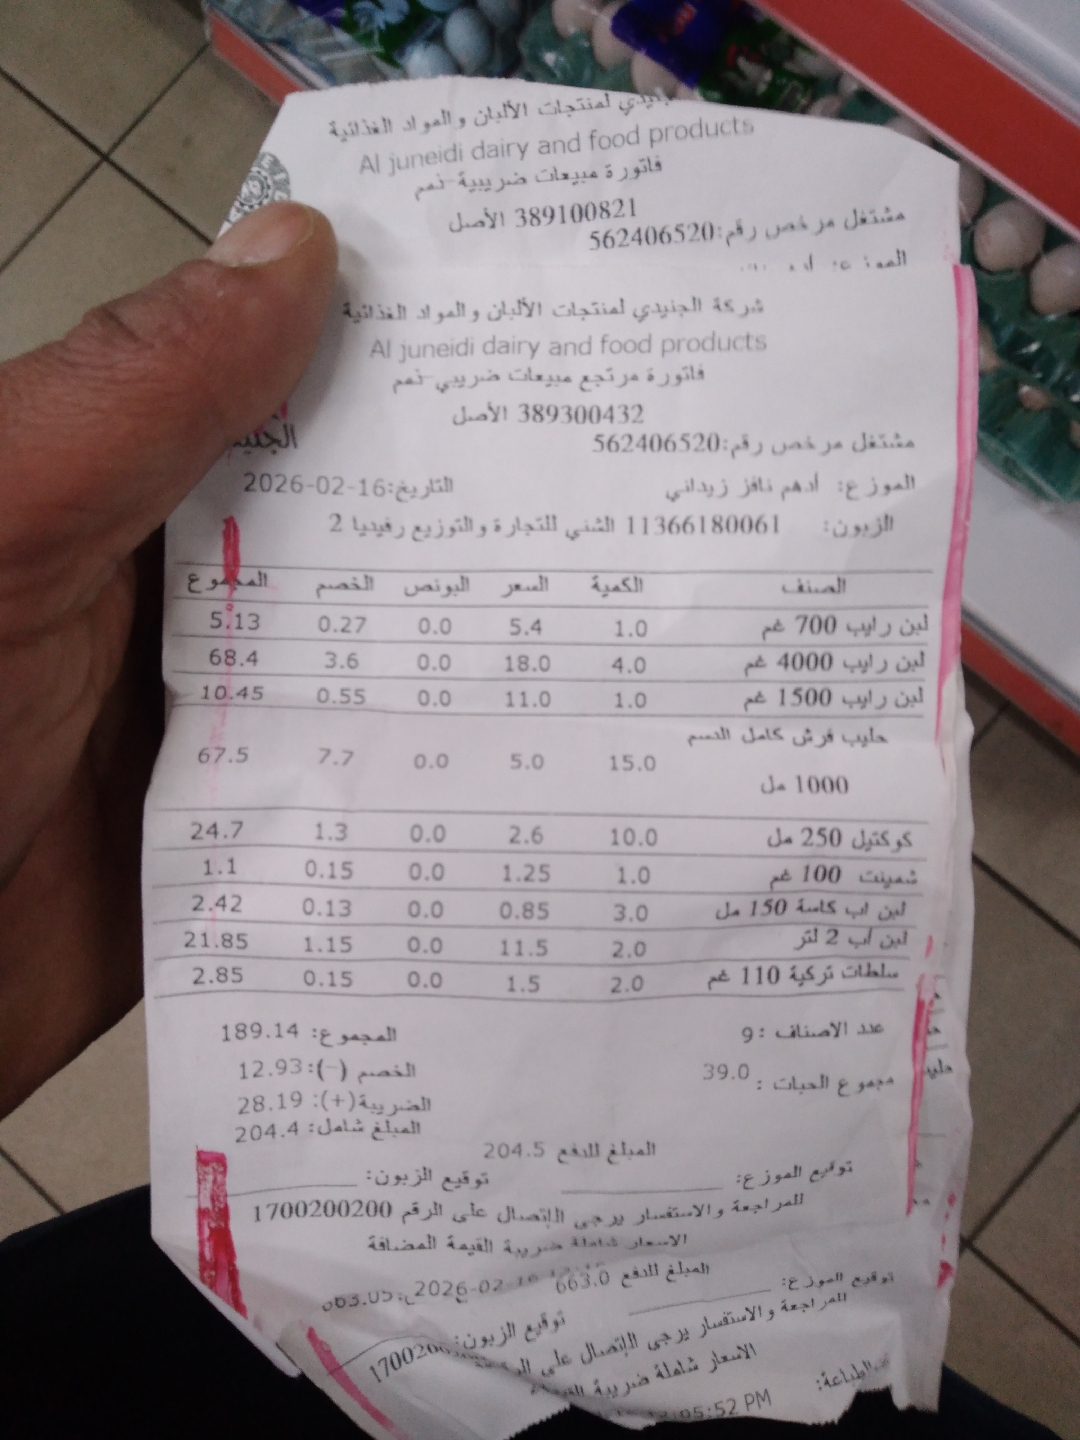 الجنيدي لمنتجات الألبان والمواد الغذائية
Al juneidi dairy and food products
فاتورة مبيعات ضريبية-نمم
389100821 الأصل
مشتغل مرخص رقم:562406520
شركة الجنيدي لمنتجات الألبان والمواد الغذائية
Al juneidi dairy and food products
فاتورة مرتجع مبيعات ضريبي-نمم
389300432 الأصل
مشتغل مرخص رقم:562406520
الموزع: أدهم نافز زيداني التاريخ:2026-02-16
الزبون: 11366180061 الشني للتجارة والتوزيع رفيديا 2
الصنف الكمية السعر البونص الخصم المجموع
لبن رايب 700 غم 1.0 5.4 0.0 0.27 5.13
لبن رايب 4000 غم 4.0 18.0 0.0 3.6 68.4
لبن رايب 1500 غم 1.0 11.0 0.0 0.55 10.45
حليب فرش كامل الدسم
1000 مل 15.0 5.0 0.0 7.7 67.5
كوكتيل 250 مل 10.0 2.6 0.0 1.3 24.7
شمينت 100 غم 1.0 1.25 0.0 0.15 1.1
لبن اب كاسة 150 مل 3.0 0.85 0.0 0.13 2.42
لبن اب 2 لتر 2.0 11.5 0.0 1.15 21.85
سلطات تركية 110 غم 2.0 1.5 0.0 0.15 2.85
عدد الاصناف :9 المجموع: 189.14
مجموع الحبات : 39.0 الخصم (-):12.93
الضريبة(+): 28.19
المبلغ شامل: 204.4
المبلغ للدفع 204.5
توقيع الموزع: توقيع الزبون:
للمراجعة والاستفسار يرجى الإتصال على الرقم 1700200200
الاسعار شاملة ضريبة القيمة المضافة
المبلغ للدفع 663.0
توقيع الموزع: توقيع الزبون:
للمراجعة والاستفسار يرجى الإتصال على
الاسعار شاملة ضريبة
05:52 PM